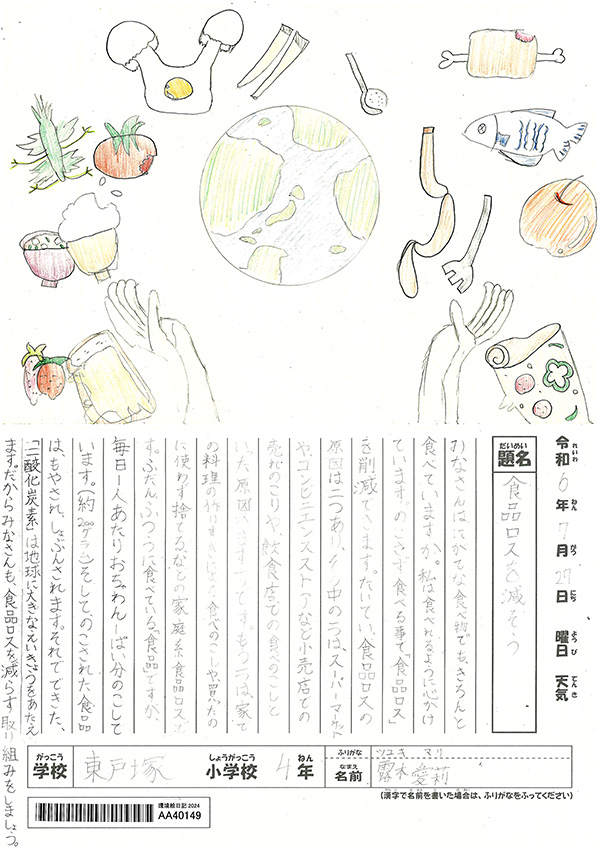 令和6年7月27日 曜日 天気
れいわ ねん がつ にち ようび てんき
題名 食品ロスを減そう
だいめい
みなさんはにがてな食べ物でも、きちんと
食べていますか。私は食べれるように心がけ
ています。のこさず食べる事で「食品ロス」
を削減できます。たいてい、食品ロスの
原因は二つあり、その中の一つは、スーパーマーケット
や、コンビニエンスストアなど小売店での
売れのこりや、飲食店での食べのこしと
いった原因 です。もう一つは、家で
の料理の作りすぎによる食べのこしや、買ったの
に使わず捨てるなどの家庭系食品ロスで
す。ふだん、ふつうに食べている「食品」ですが、
毎日一人あたりおちゃわん一ぱい分のこして
います。(約200グラム)そして、のこされた食品
は、もやされ、しょぶんされます。それでできた、
「二酸化炭素」は地球に大きなえいきょうをあたえ
ます。だからみなさんも、食品ロスを減らす取り組みをしましょう。
がっこう しょうがっこう ねん
学校 東戸塚 小学校 4年
ふりがな ツユキ マリ
なまえ
名前 露木 愛莉
(漢字で名前を書いた場合は、ふりがなをふってください)
環境絵日記2024
AA40149